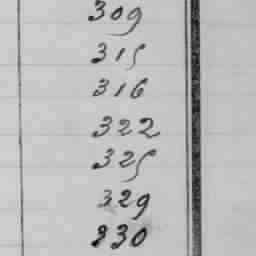 309
315
316
322
325
329
330